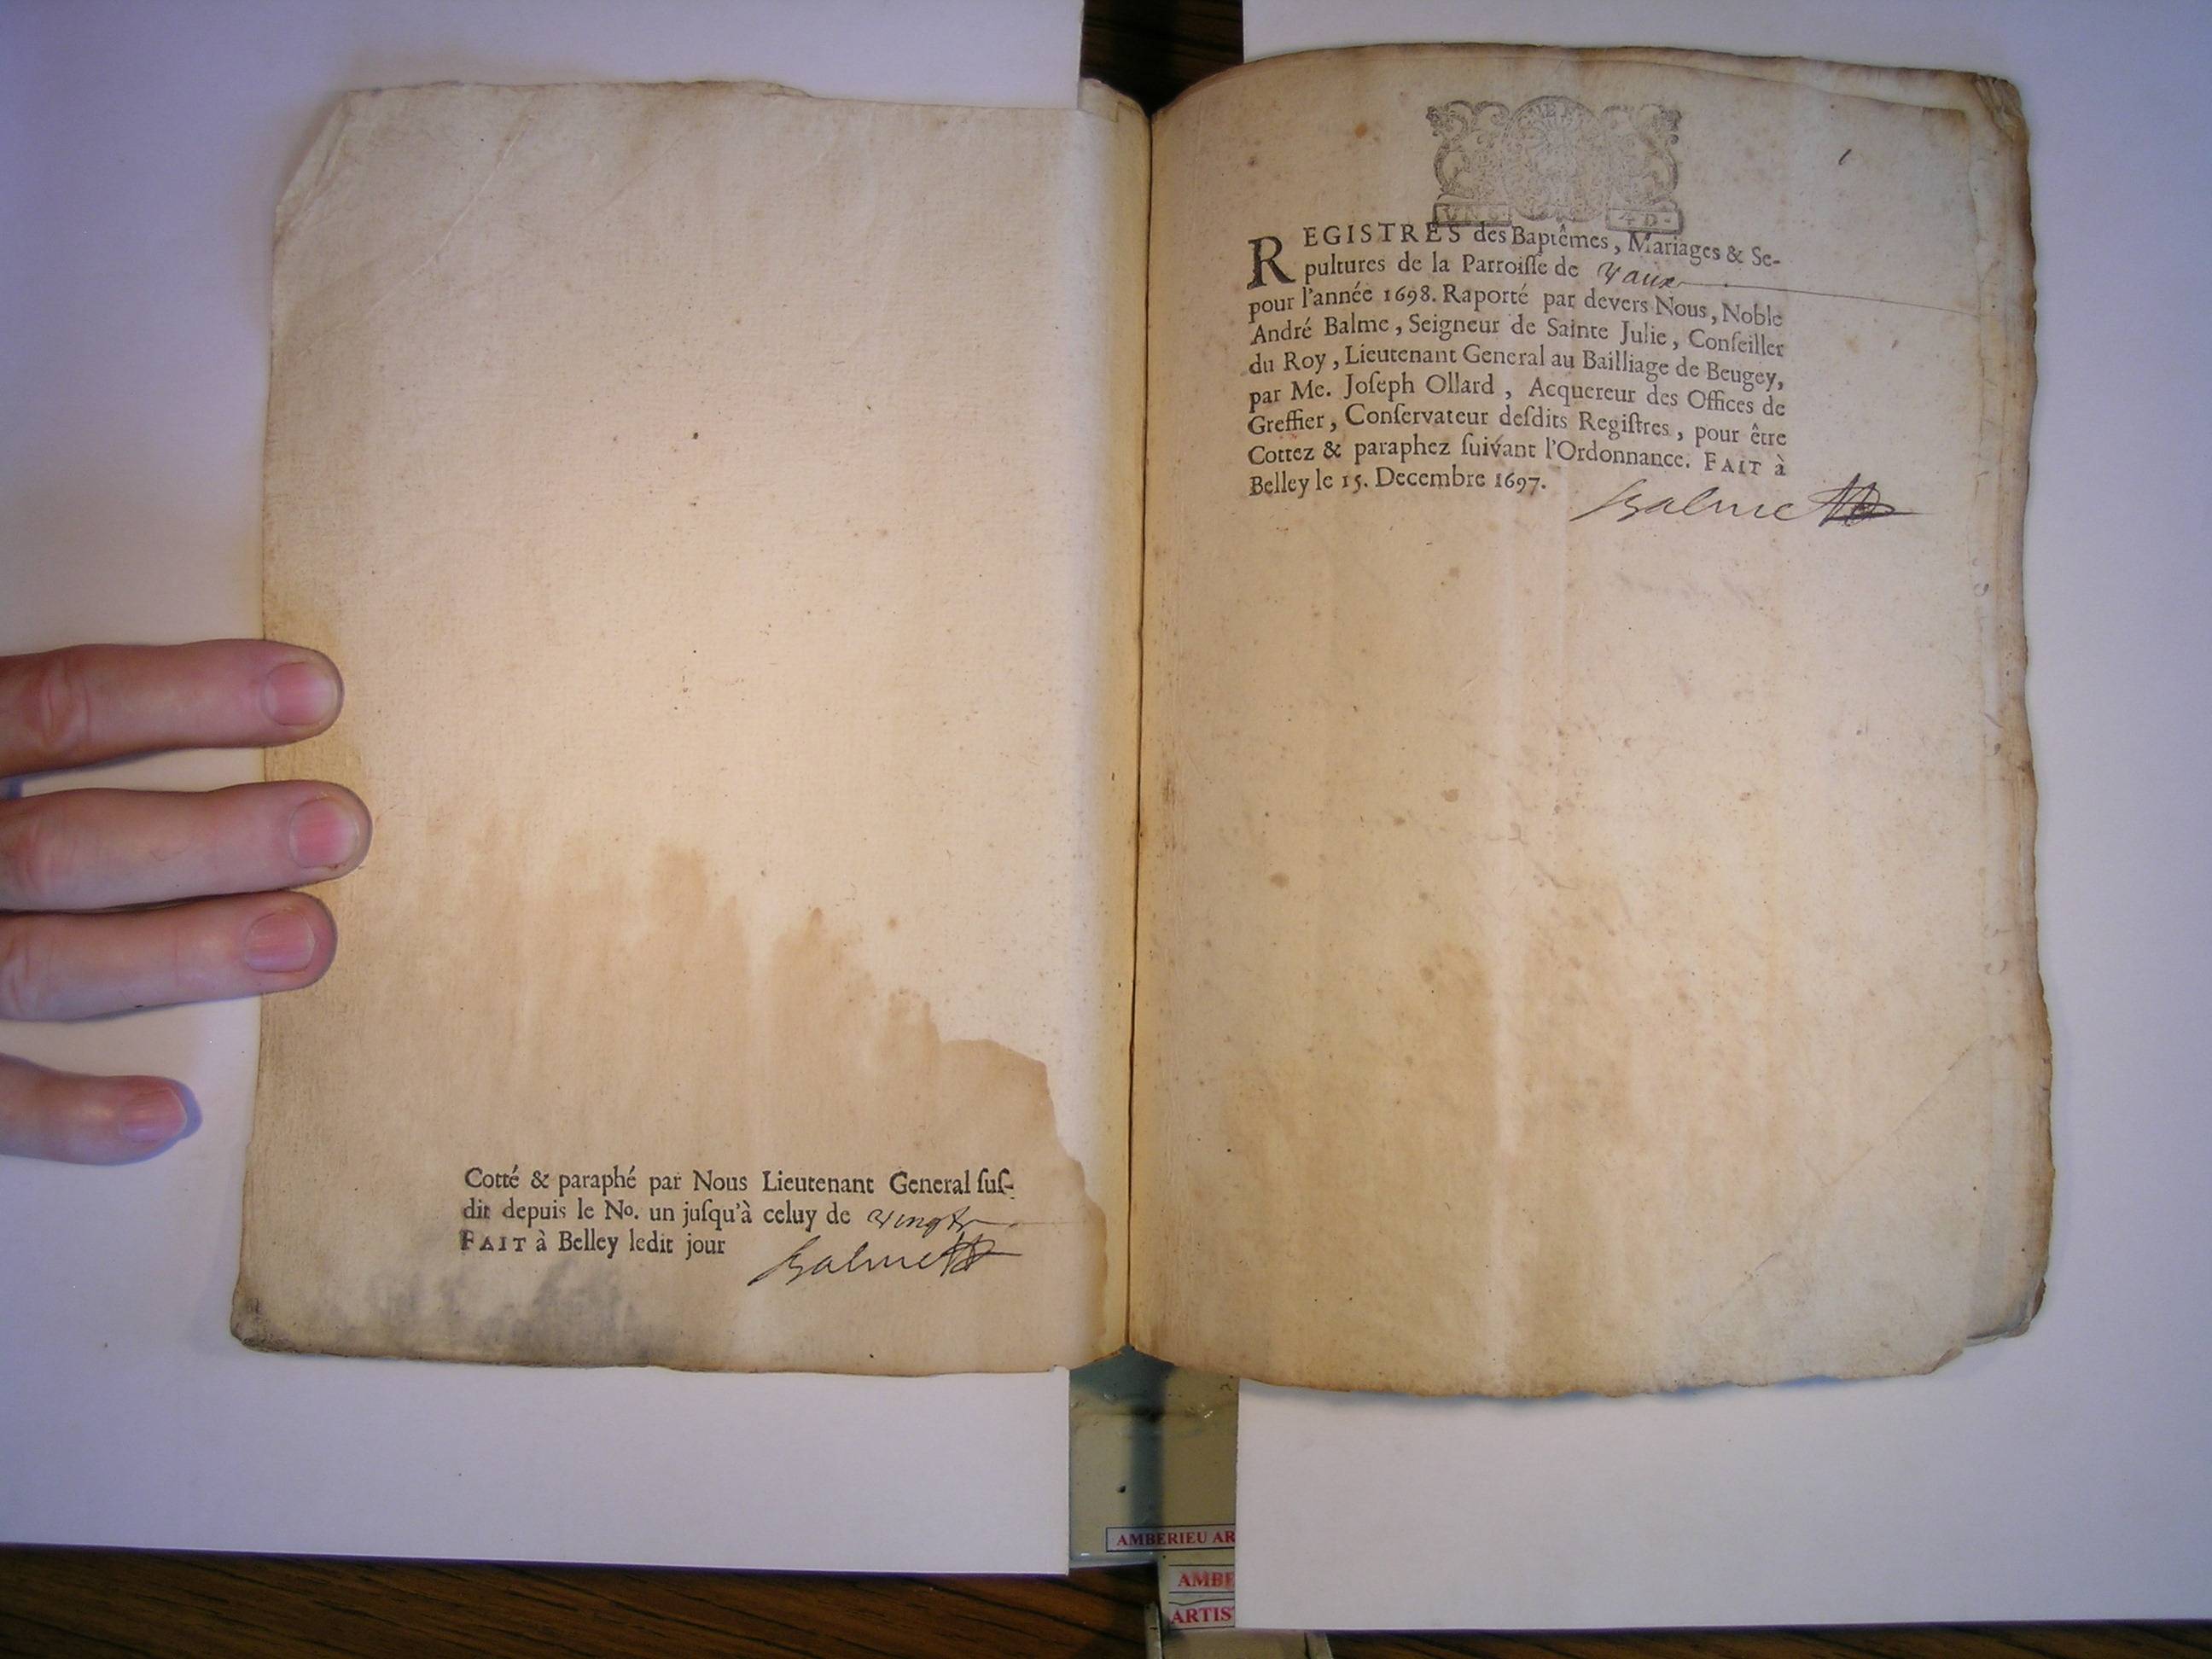 Cotté & paraphé par Nous Lieutenant General ſuſ-
dit depuis le No. un juſqu'à celuy de vingt
FAIT à Belley ledit jour
Balme
4 D.
REGISTRES des Baptêmes, Mariages & Se-
pultures de la Parroiſſe de Vaux
pour l'année 1698. Raporté par devers Nous, Noble
André Balme, Seigneur de Sainte Julie, Conſeiller
du Roy, Lieutenant General au Bailliage de Beugey,
par Me. Joſeph Ollard, Acquereur des Offices de
Greffier, Conſervateur deſdits Regiſtres, pour être
Cottez & paraphez ſuivant l'Ordonnance. FAIT à
Belley le 15. Decembre 1697.
Balme
AMBERIEU AR
AMBE
ARTIS